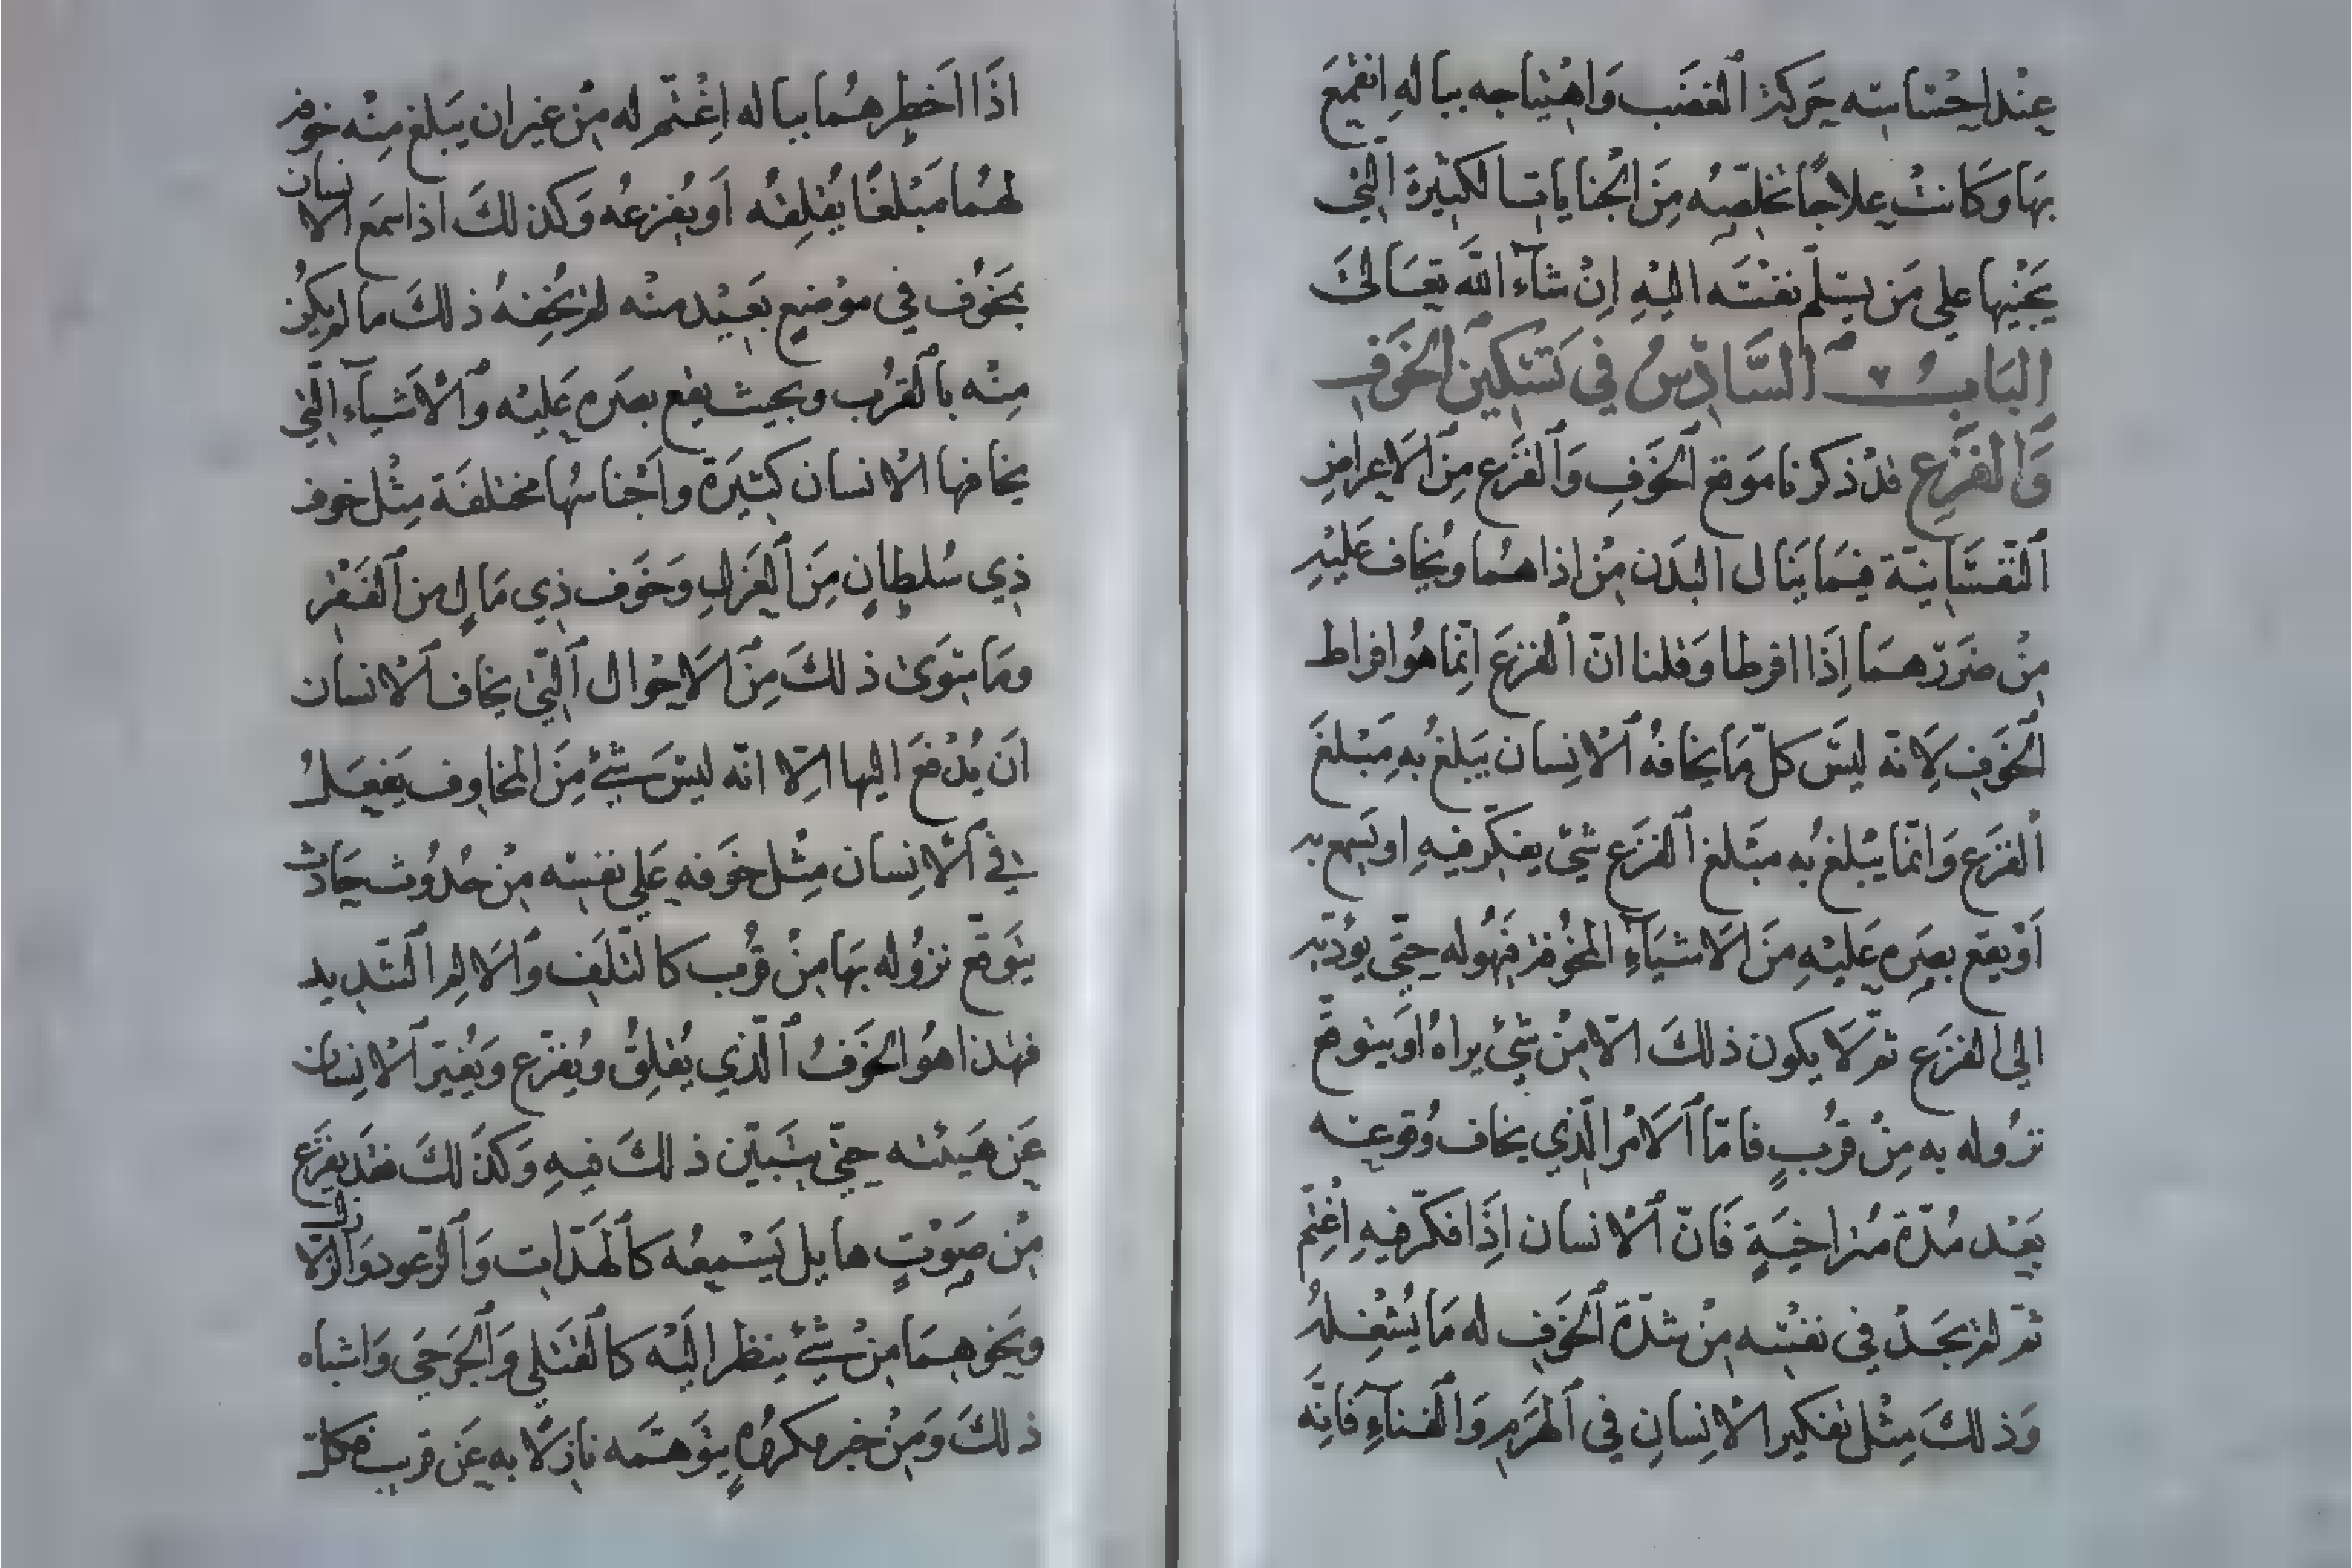 عِنْد احْسَاسِه حَركة ٱلغضَب وَاهْتِياجه بباله انقمَعَ
بهَا وَكَانتْ عِلاجًا تخلصِه مِنَ الجْنايات الكَبيْرةَ الَّتي
يَجْنِيها علي مَن يسَلّم نفسَه اليْهِ اِنْ شآءَ اللّه تعَالىَ
البَابُ السَّادّسُ في تَسْكين الخَوَف
وَالفَزَع قدْ ذكرنا مَوقع ٱلخَوفِ وَٱلفَزَع مِنَ ٱلاَعراضِ
ٱلنّفسَانيّة فيمَا يَنال البدَن مِنْ اذاهُما ويُخاف عَليْهِ
مِنْ ضَررهمَا اِذَا افرطا وَقلنا انّ ٱلفزعَ اِنّما هُوا فراط
ٱلخَوَفِ لِاَنّه ليسَ كلّ مَا يخافهُ ٱلاْنِسان يَبلغ بُهِ مَبْلغَ
ٱلفزَع وَانمّا يبْلغ بُه مبْلغ ٱلفزَع شيْ يفكّر فيهِ او يَسمع به
اَوْ يقع بصَره عَليْهِ مِنَ ٱلاَشيَآءِ المخُوفة فيَهُوله حتّي يؤدّيه
الي الفزَع ثم لاَ يكون ذلكَ الاّ مِنْ شيْ يراهُ اَو يتوقّع
نزوله به مِنْ قرُبٍ فامّا ٱلاَمْر الّذي يخاف وُقوعه
بَعْد مُدّة مُتراخيَةٍ فَانّ ٱلاْنسان اِذَا فكرّ فيهِ اغْتم
ثم لم يجَدْ في نفسْه مِنْ شدّة ٱلخَوف له مَا يُشغلهُ
وَذلكَ مِثْل تفكير الاْنِسانِ في ٱلهَرَمِ وَالفناءِ فَانّه
اذَا اَخطرهُما بباله اِغْتّم له مِنْ غير ان يَبلغ مِنْه خوفه
لهُما مَبْلغًا يُقلِقهُ اَو يفزعُه وَكذلكَ اذا سمَع الاْنسان
بمَخوُف في موْضع بَعيْد منْه لم يُخِفهُ ذلكَ ما لم يكنْ
مِنْه بٱلقرُب وبحيث يقع بصَره عَليْه وٱلاْشيآءَ الّتي
يخافها الاْنسان كثيَرة واَجْناسُها مختلفَة مِثْل خوف
ذِي سُلطانٍ مِنَ ٱلعَزلِ وَخوَف ذِي مَالٍ من ٱلفَقْر
ومَا سِوَىٰ ذلكَ مِنَ ٱلاَحْوال ٱلّتيْ يخاف ٱلاْنسان
اَنَ يُدْفعَ اليها الاّ انّه ليسَ شيْئ مِنَ المخاوِف يَفعَلُ
في ٱلاْنِسان مِثْل خَوفه عَلي نفسِه مِنْ حُدُوث حَادث
يتوَقّع نزوُله بهَا مِنْ قُرب كالتّلف وٱلاَلم ٱلشّديد
فهٰذا هوُ الخَوَفُ ٱلّذي يُقلِقُ ويُفزّع وَيُغيّر ٱلاْنِسان
عَن هَيئته حتّيْ يتَبيّن ذلكَ فيهِ وَكذَلكَ فقَد يفزع
مِنْ صَوْتٍ هايل يَسْمعهُ كٱلهَدّات وَٱلرّعود وَٱلزّلازل
ونَحوهمَا مِنْ شيْئ ينظر الَيْه كٱلقتلي وَٱلجَرحَي وَاشباه
ذلكَ وَمِنْ خبر مكروُهٍ يتوَهّمَه نازلاً به عَن قرب فكلّ